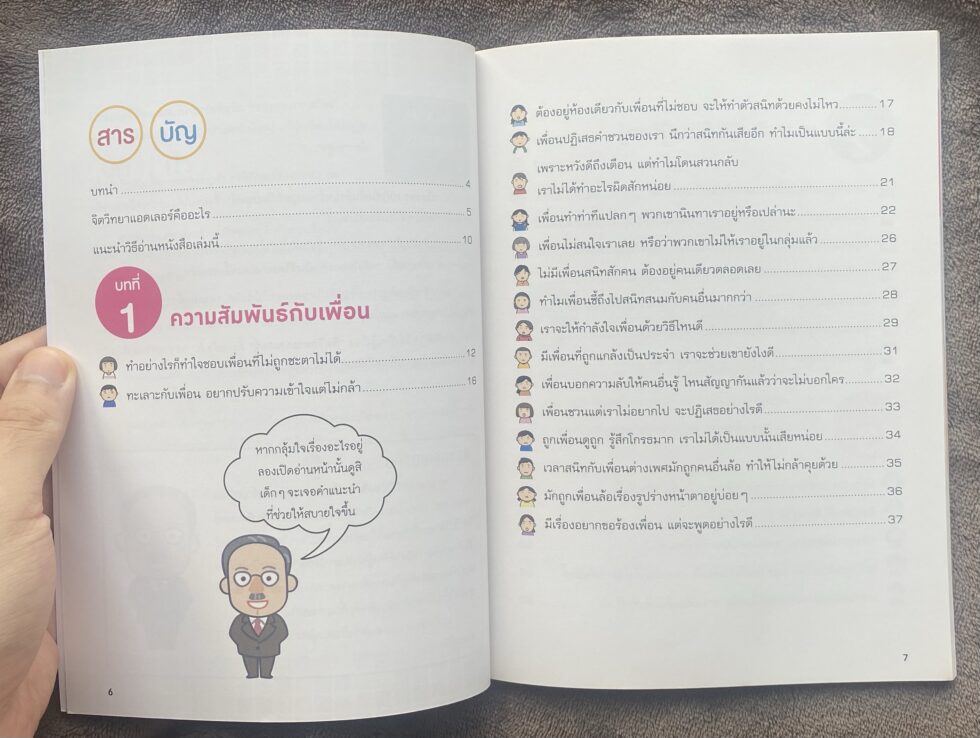 สารบัญ
บทนำ 4
จิตวิทยาแอดเลอร์คืออะไร 5
แนะนำวิธีอ่านหนังสือเล่มนี้ 10
บทที่
1
ความสัมพันธ์กับเพื่อน
ทำอย่างไรก็ทำใจชอบเพื่อนที่ไม่ถูกชะตาไม่ได้ 12
ทะเลาะกับเพื่อน อยากปรับความเข้าใจแต่ไม่กล้า 16
หากกลุ้มใจเรื่องอะไรอยู่
ลองเปิดอ่านหน้านั้นดูสิ
เด็กๆ จะเจอคำแนะนำ
ที่ช่วยให้สบายใจขึ้น
6
ต้องอยู่ห้องเดียวกับเพื่อนที่ไม่ชอบ จะให้ทำตัวสนิทด้วยคงไม่ไหว 17
เพื่อนปฏิเสธคำชวนของเรา นึกว่าสนิทกันเสียอีก ทำไมเป็นแบบนี้ล่ะ 18
เพราะหวังดีถึงเตือน แต่ทำไมโดนสวนกลับ
เราไม่ได้ทำอะไรผิดสักหน่อย 21
เพื่อนทำท่าทีแปลกๆ พวกเขานินทาเราอยู่หรือเปล่านะ 22
เพื่อนไม่สนใจเราเลย หรือว่าพวกเขาไม่ให้เราอยู่ในกลุ่มแล้ว 26
ไม่มีเพื่อนสนิทสักคน ต้องอยู่คนเดียวตลอดเลย 27
ทำไมเพื่อนซี้ถึงไปสนิทสนมกับคนอื่นมากกว่า 28
เราจะให้กำลังใจเพื่อนด้วยวิธีไหนดี 29
มีเพื่อนที่ถูกแกล้งเป็นประจำ เราจะช่วยเขายังไงดี 31
เพื่อนบอกความลับให้คนอื่นรู้ ไหนสัญญากันแล้วว่าจะไม่บอกใคร 32
เพื่อนชวนแต่เราไม่อยากไป จะปฏิเสธอย่างไรดี 33
ถูกเพื่อนดูถูก รู้สึกโกรธมาก เราไม่ได้เป็นแบบนั้นเสียหน่อย 34
เวลาสนิทกับเพื่อนต่างเพศมักถูกคนอื่นล้อ ทำให้ไม่กล้าคุยด้วย 35
มักถูกเพื่อนล้อเรื่องรูปร่างหน้าตาอยู่บ่อยๆ 36
มีเรื่องอยากขอร้องเพื่อน แต่จะพูดอย่างไรดี 37
7